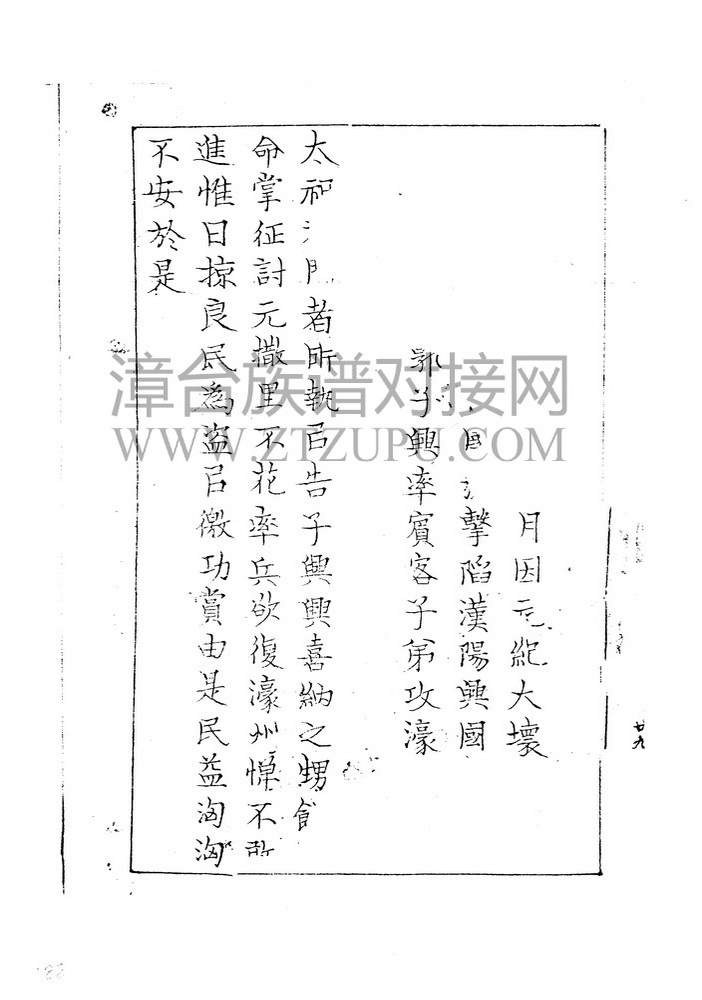 月因元紀大壞
擊陷漢陽興國
郭子興率賓客子弟攻濠
太祖門者所執㠯告子興興喜納之甥館
命掌征討元撒里不花率兵欲復濠州憚不敢
進惟日掠良民為盗㠯徼功賞由是民益洶洶
不安於是
廿九
漳台族谱对接网
WWW.ZTZUPU.COM